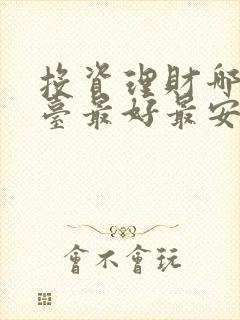 投資理財哪
臺最好最安
會不會玩